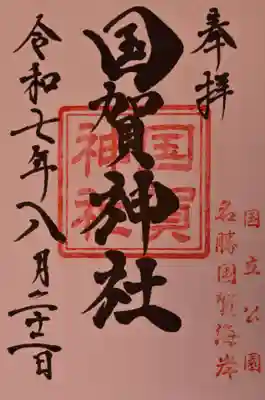 奉拝
国立公園
名勝国賀海岸
国賀神社
国賀
神社
令和七年八月二十二日